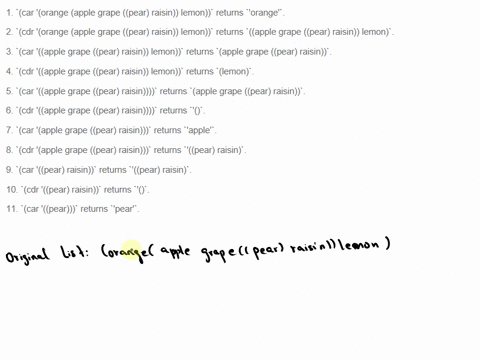 1. `(car '(orange (apple grape ((pear) raisin)) lemon))` returns `'orange'`.
2. `(cdr '(orange (apple grape ((pear) raisin)) lemon))` returns `((apple grape ((pear) raisin)) lemon)`.
3. `(car '((apple grape ((pear) raisin)) lemon))` returns `(apple grape ((pear) raisin))`.
4. `(cdr '((apple grape ((pear) raisin)) lemon))` returns `(lemon)`.
5. `(car '((apple grape ((pear) raisin))))` returns `(apple grape ((pear) raisin))`.
6. `(cdr '((apple grape ((pear) raisin))))` returns `'()`.
7. `(car '(apple grape ((pear) raisin)))` returns `'apple'`.
8. `(cdr '(apple grape ((pear) raisin)))` returns `'((pear) raisin)`.
9. `(car '((pear) raisin))` returns `'((pear) raisin)`.
10. `(cdr '((pear) raisin))` returns `'()`.
11. `(car '((pear)))` returns `'pear'`.
Original list: (orange( apple grape((pear) raisin)) lemon)